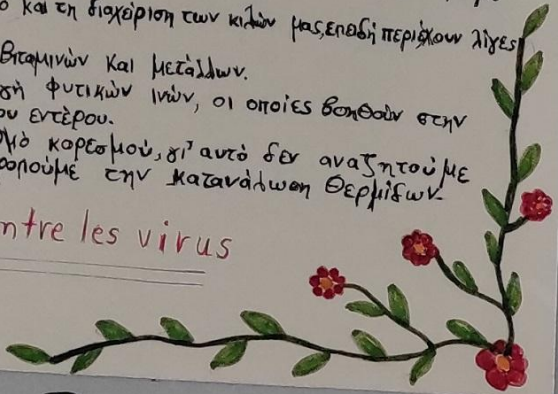 ο και τη διαχείριση των κιλών μας, επειδή περιέχουν λίγες
βιταμινών και μετάλλων.
γή φυτικών ινών, οι οποίες βοηθούν στην
ου εντέρου.
μό κορεσμού, γι' αυτό δεν αναζητούμε
ρολούμε την κατανάλωση θερμίδων.
ntre les virus